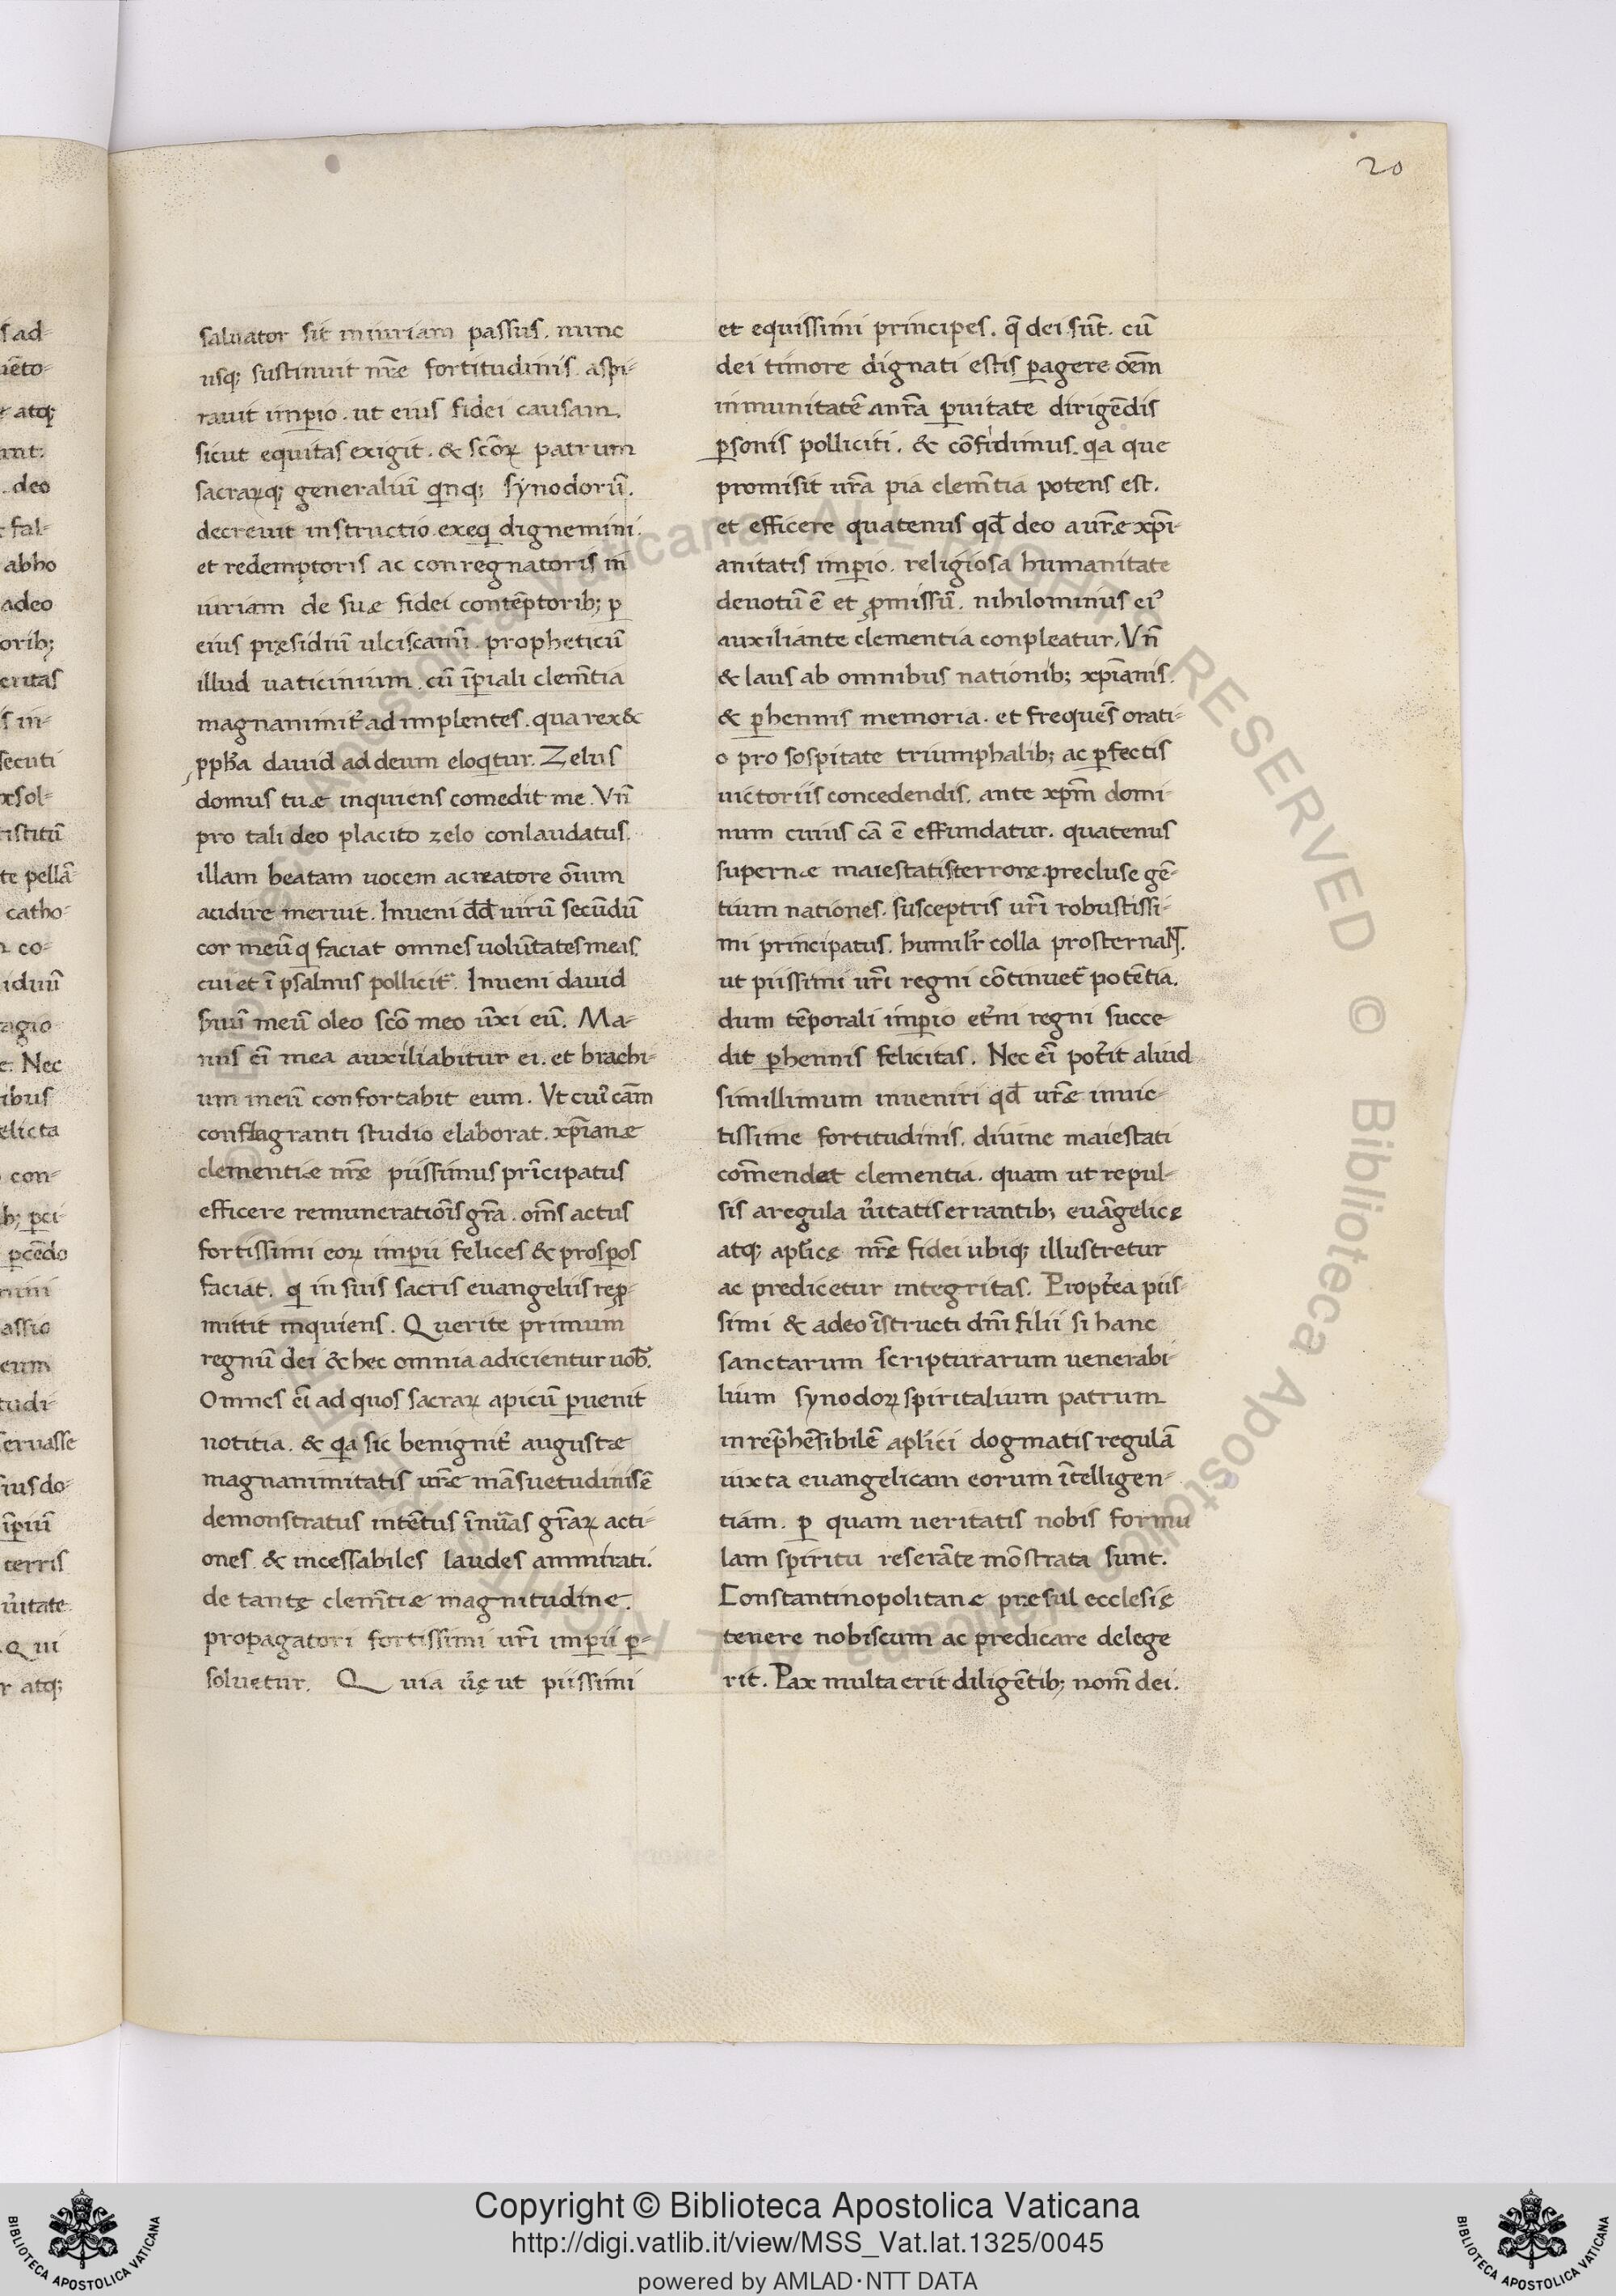 20
s ad-
uēto-
atq;
unt.
deo
fal-
abho
adeo
orib;
eritas
s in-
secuti
sol-
tistitū
te pellā-
catho-
co-
iduū
agio
e. Nec
ibus
elicta
con-
b; pci-
pcēdo
mini
assio
eum
tudi-
seruasse
ius do-
īpiū
terris
ūitate
Qui
r atq;
saluator sit iniuriam passus. nunc
usq; sustinuit nr̄ae fortitudinis. aspi-
rauit impio. ut eius fidei causam.
sicut equitas exigit. & scōꝝ patrum
sacraꝝq; generaliū qinq; synodorū.
decreuit instructio. exeq dignemini.
et redemptoris ac conregnatoris in
iuriam de suæ fidei contēptorib; p
eius pręsidiū ulciscamī. propheticū
illud uaticinium. cū īpiali clem̄tia
magnanimit̄ ad implentes. qua rex &
ppħa dauid ad deum eloqtur. Zelus
domus tuæ inquiens comedit me. Vn̄
pro tali deo placito zelo conlaudatus.
illam beatam uocem acreatore ōium
audire meruit. Inueni dd̄ uirū secūdū
cor meū q faciat omnes uolūtates meas.
cui et ī psalmis pollicit̄. Inueni dauid
seruū meū oleo scō meo ūxi eū. Ma-
nus eī mea auxiliabitur ei. et brachi-
um meū confortabit eum. Vt cuī cām
conflagranti studio elaborat. xp̄ianæ
clementiæ nr̄æ piissimus prīcipatus
efficere remuneratiōis gr̄a. om̄s actus
fortissimi eoꝝ impii felices & prospos
faciat. q in suis sacris euangeliis rep-
mittit inquiens. Querite primum
regnū dei & hec omnia adicientur uob̄.
Omnes eī ad quos sacraꝝ apicū puenit
notitia. & qa sic benignit̄ augustæ
magnanimitatis ur̄æ māsuetudinis ē
demonstratus intētus īnūas gr̄aꝝ acti-
ones. & incessabiles laudes ammirati.
de tantę clem̄tiæ magnitudine.
propagatori fortissimi ur̄i impii p-
soluetur. Quia ūę ut piissimi
et equissimi principes. q̄ dei sūt. cū
dei timore dignati estis pagere oēm
inmunitatē anr̄a puitate dirigēdis
psonis polliciti. & cōfidimus. qa que
promisit ur̄a pia clem̄tia potens est.
et efficere quatenus qd̄ deo aur̄æ xp̄i-
anitatis impio. religiosa humanitate
deuotū ē et pmissū. nihilominus ei᾽
auxiliante clementia conpleatur. Vn̄
& laus ab omnibus nationib; xp̄ianis.
& phennis memoria. et frequēs orati-
o pro sospitate triumphalib; ac pfectis
uictoriis concedendis. ante xp̄m domi-
num cuius cā ē effundatur. quatenus
supernæ maiestatis terrore precluse gē-
tium nationes. susceptris ur̄i robustissi-
mi principatus. humilr̄ colla prosternant.
ut piissimi ur̄i regni cōtinuet̄ potētia.
dum tēporali impio et̄ni regni succe-
dit phennis felicitas. Nec eī pot̄it aliud
simillimum inueniri qd̄ ur̄æ inuic-
tissime fortitudinis. diuine maiestati
com̄endet clementia. quam ut repul-
sis aregula ūitatis errantib; euāgelicę
atq; apl̄icę nr̄ę fidei ubiq; illustretur
ac predicetur integritas. Propt̄ea piis-
simi & adeo īstructi dn̄i filii si hanc
sanctarum scripturarum uenerabi-
lium synodoꝝ spiritalium patrum
inrep̄hēsibilē apl̄ici dogmatis regulā
iuxta euangelicam eorum ītelligen-
tiam. p quam ueritatis nobis formu
lam spiritu reserāte mōstrata sunt.
Constantinopolitanæ pręsul ecclesię
tenere nobiscum ac predicare delege
rit. Pax multa erit diligētib; nom̄ dei.
Copyright © Biblioteca Apostolica Vaticana
http://digi.vatlib.it/view/MSS_Vat.lat.1325/0045
powered by AMLAD·NTT DATA
BIBLIOTECA APOSTOLICA VATICANA
BIBLIOTECA APOSTOLICA VATICANA